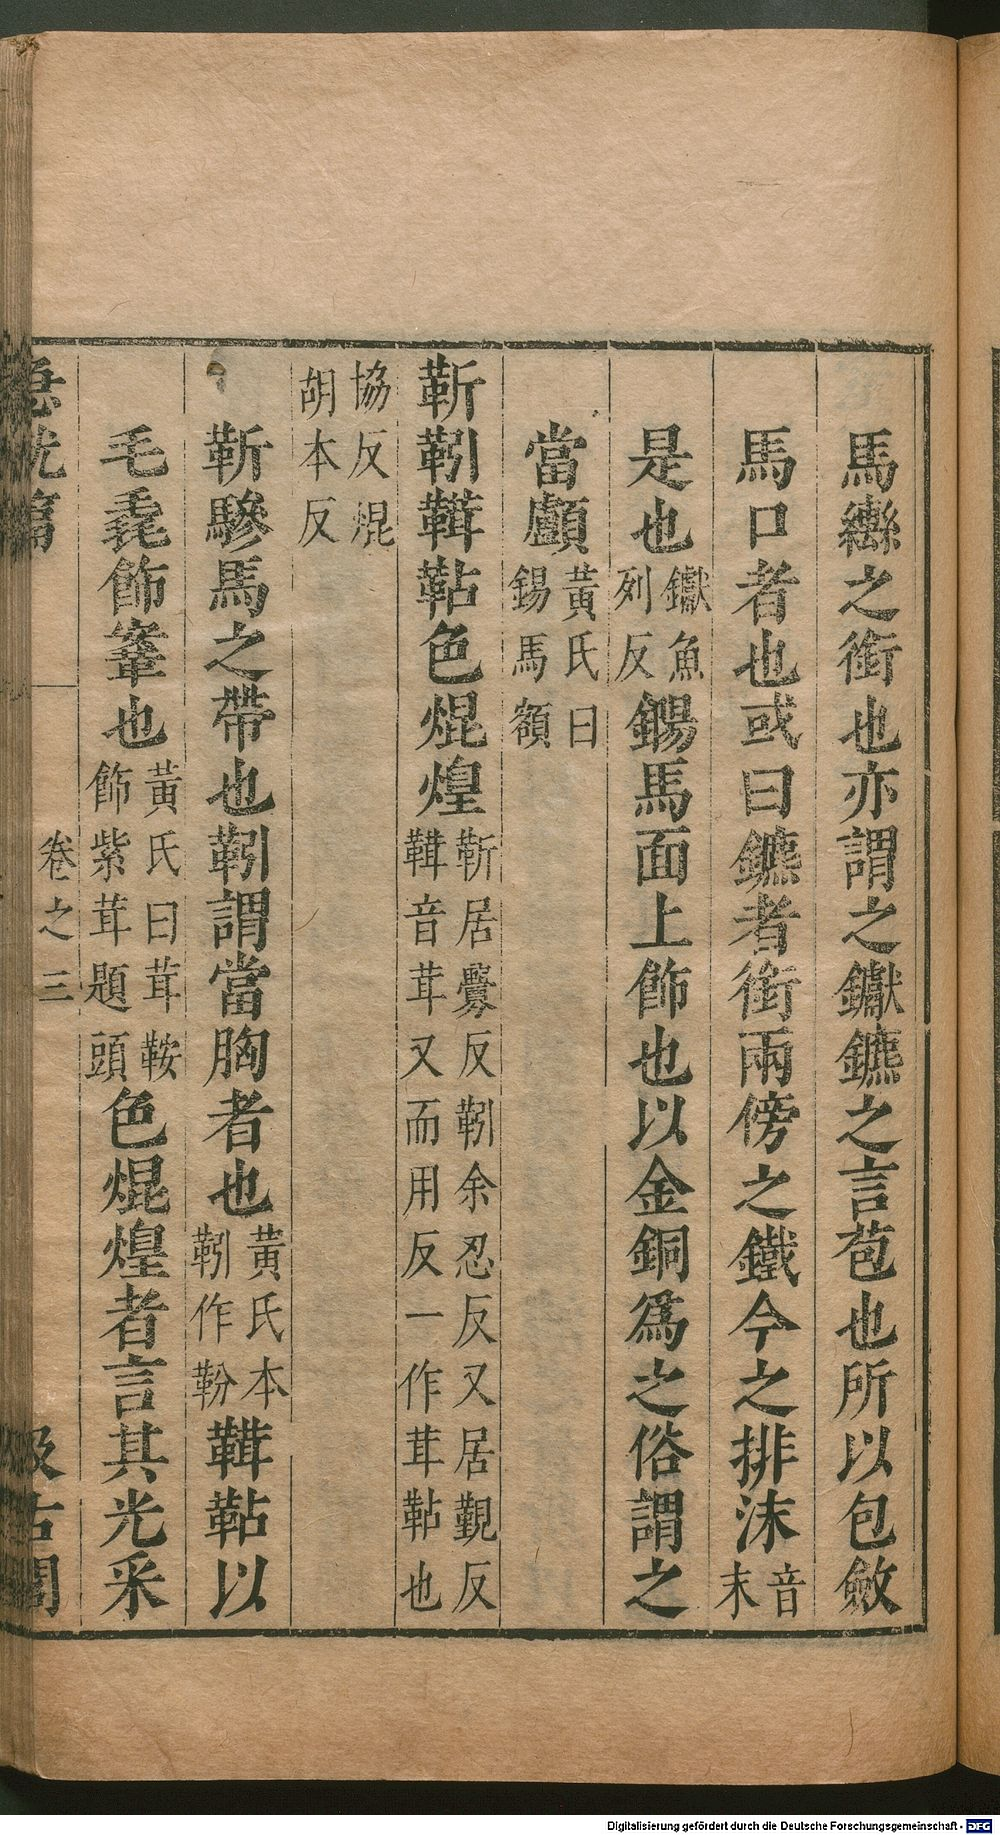 馬轡之銜也亦謂之钀鑣之言苞也所以包斂
馬口者也或曰鑣者銜兩傍之鐵今之排沫音末
是也钀魚列反鍚馬面上飾也以金銅爲之俗謂之
當顱黃氏曰鍚馬額
靳靷鞾鞊色焜煌靳居釁反靷余忍反又居覲反鞾音茸又而用反一作茸鞊也
協反焜胡本反
靳驂馬之帶也靷謂當胸者也黃氏本靷作䩿鞾鞊以
毛毳飾鞌也黃氏曰茸鞍飾紫茸題頭色焜煌者言其光采
急就篇 卷之三 汲古閣
Digitalisierung gefördert durch die Deutsche Forschungsgemeinschaft - DFG